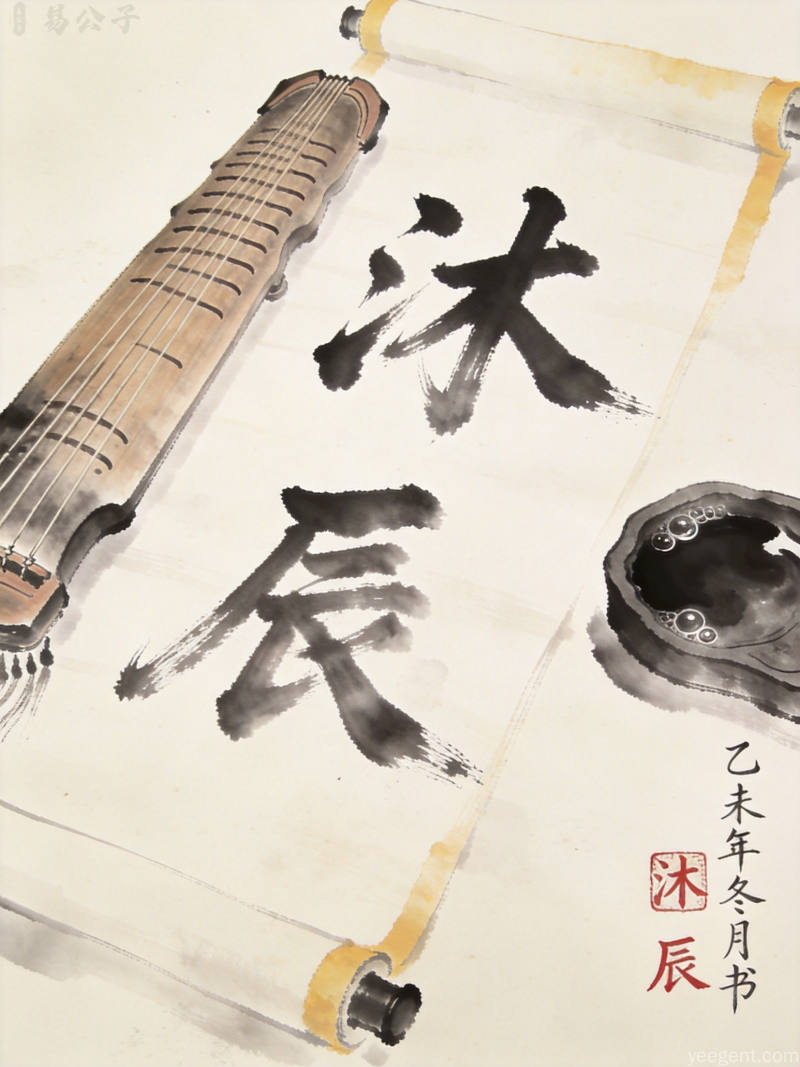 易公子
沐
辰
乙未年冬月书
沐
辰
yeegent.com